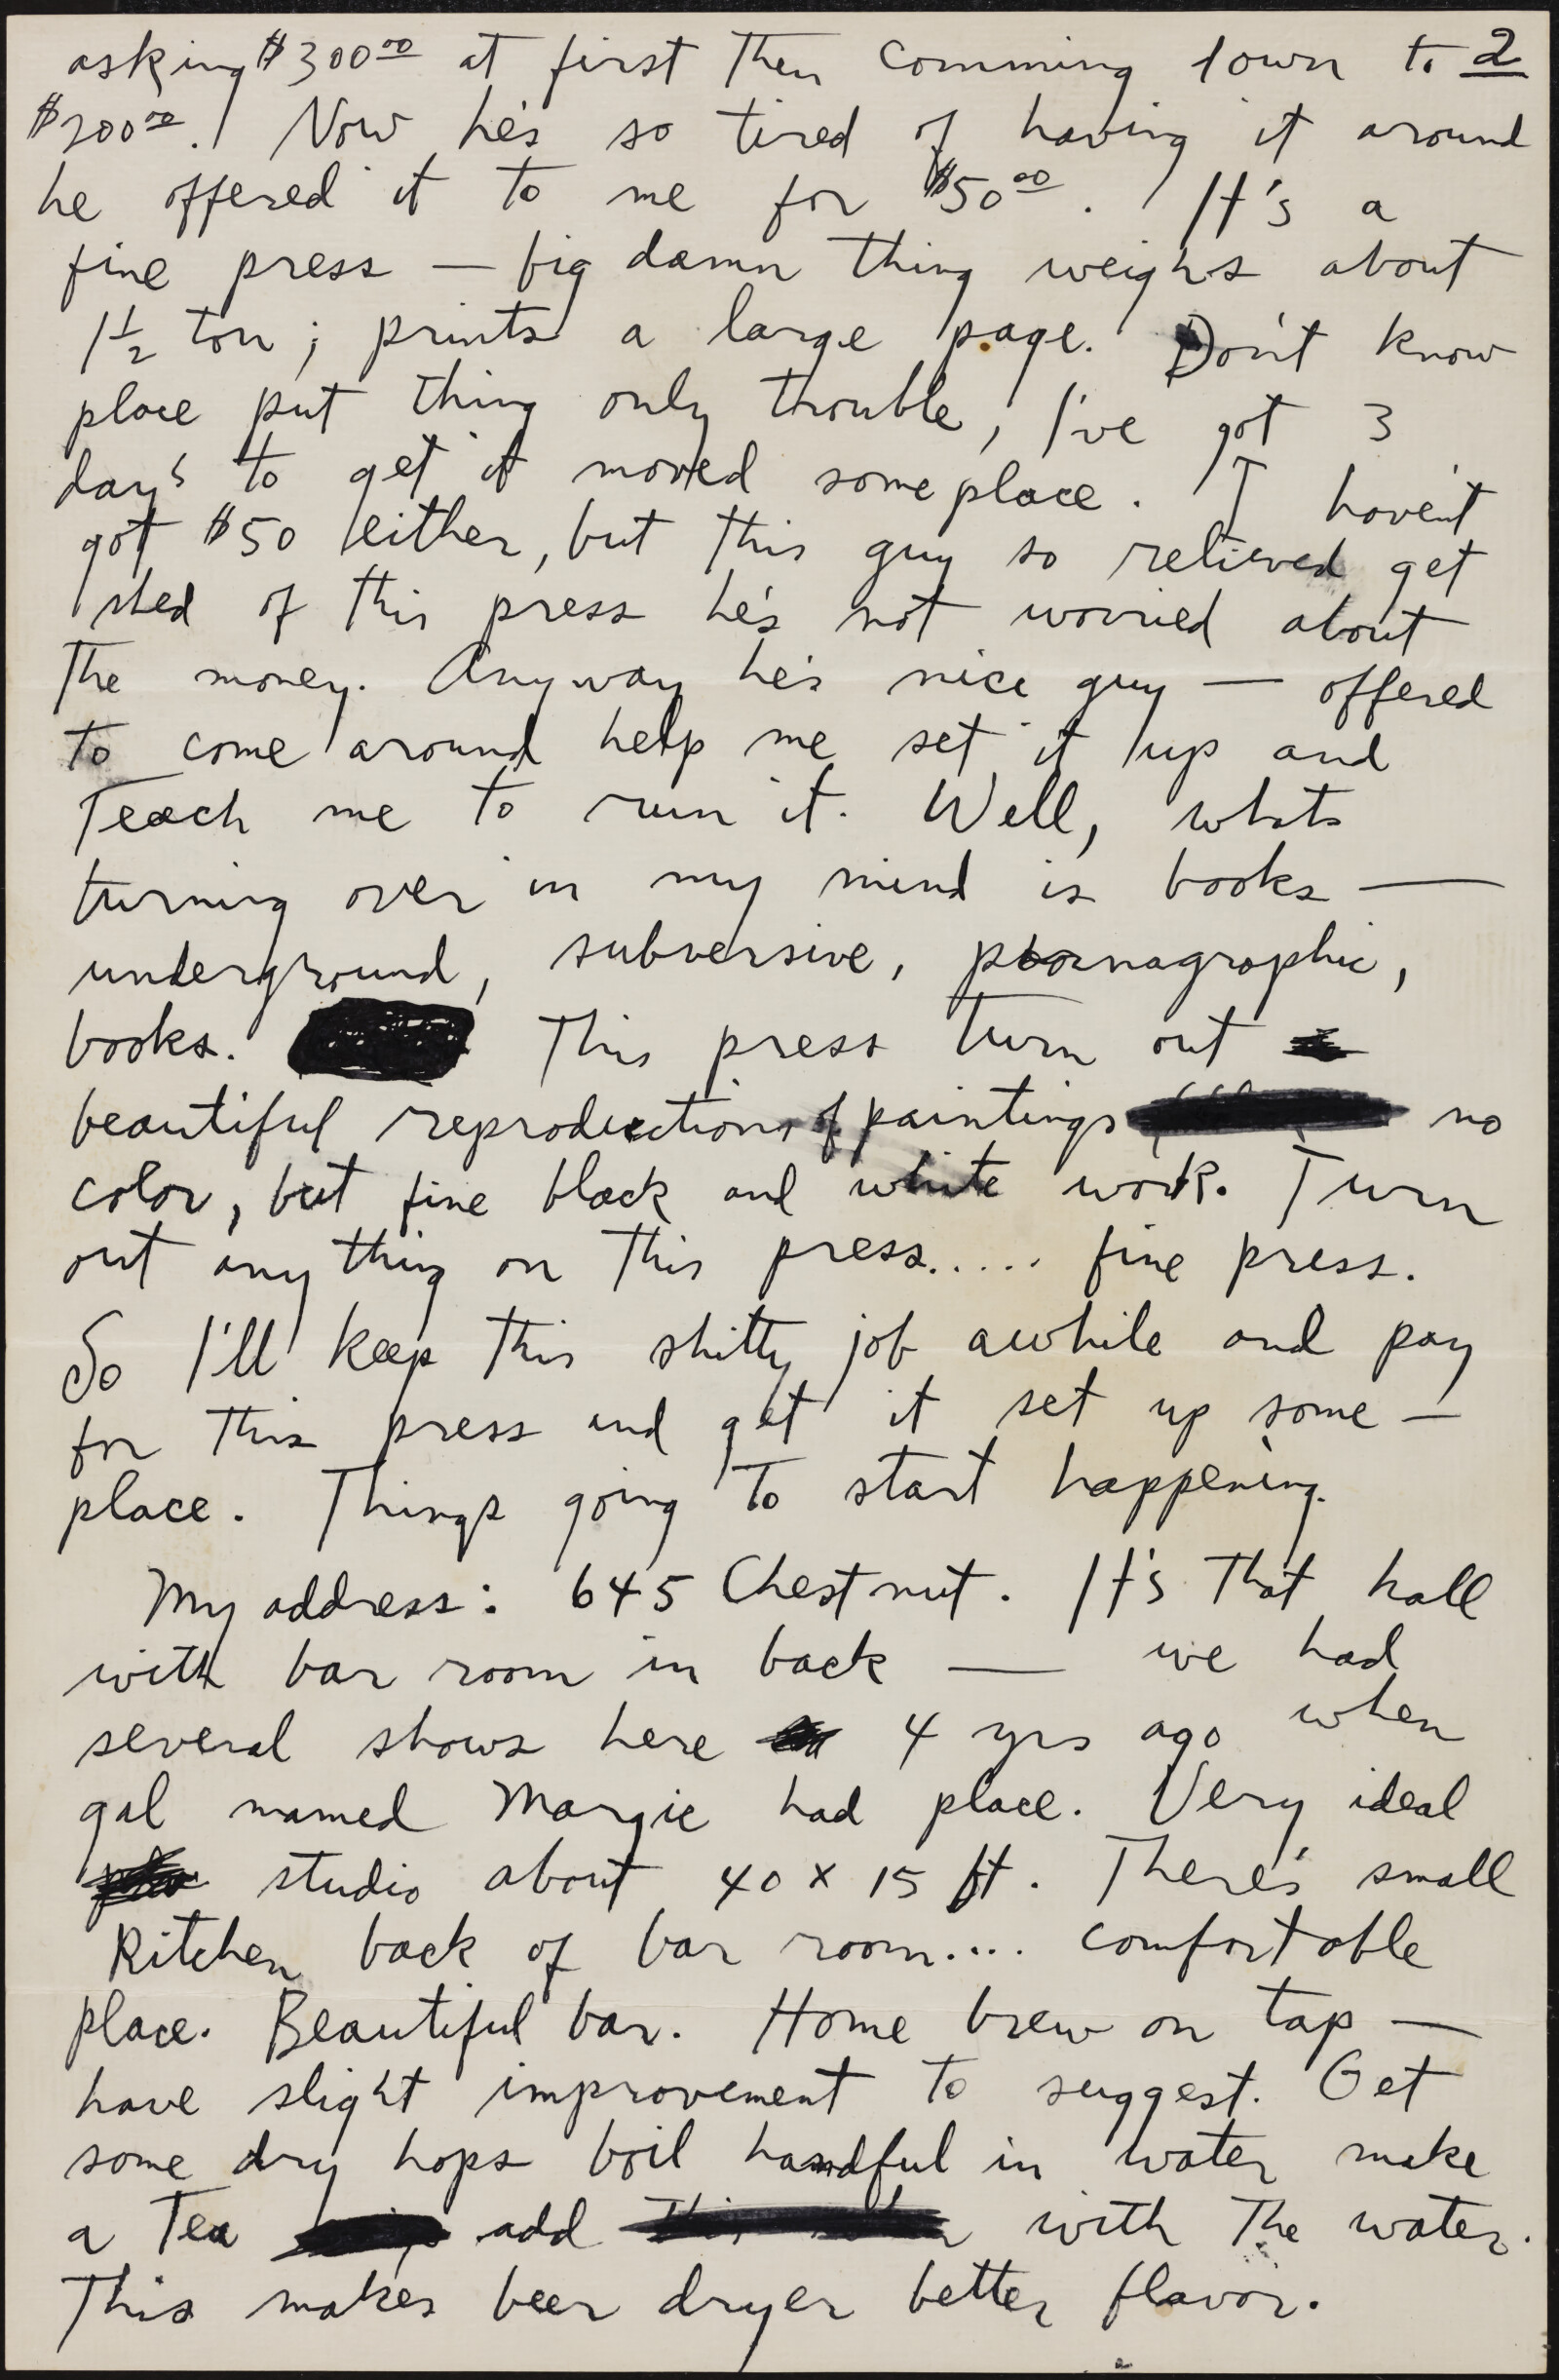 asking $300.00 at first then comming down to 2
$200.00. Now he's so tired of having it around
he offered it to me for $50.00. It's a
fine press — big damn thing weighs about
1½ ton; prints a large page. Don't know
place put thing only trouble, I've got 3
day's to get it moved someplace. I haven't
got $50 either, but this guy so relieved get
shed of this press he's not worried about
the money. Anyway he's nice guy — offered
to come around help me set it up and
Teach me to run it. Well, whats
turning over in my mind is books —
underground, subversive, pornagraphic,
books. This press turn out
beautiful reproductions of paintings no
color, but fine black and white work. Turn
out any thing on this press..... fine press.
So I'll keep this shitty job awhile and pay
for this press and get it set up some —
place. Things going to start happening.
My address: 645 Chestnut. It's that hall
with bar room in back — we had
several shows here 4 yrs ago when
gal named Margie had place. Very ideal
studio about 40 x 15 ft. There's small
Kitchen back of bar room.... comfortable
place. Beautiful bar. Home brew on tap —
have slight improvement to suggest. Get
some dry hops boil handful in water make
a Tea add with the water.
This makes beer dryer better flavor.